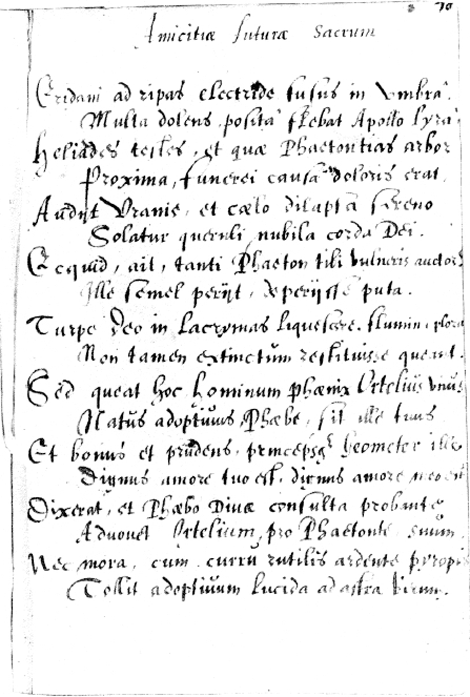 70
Amicitiæ futuræ Sacrum
Eridani ad ripas electride fusus in vmbrâ
Multa dolens positâ flebat Apollo lyrâ
Heliades testes, et quæ Phaetontias arbor
Proxima, funerei causa doloris erat.
Audijt Vranie, et cælo dilapsa sereno
Solatur queruli nubila corda Dei.
Ecquid, ait, tanti Phaeton tibi vulneris auctor?
Ille semel perijt, deperijsse puta.
Turpe Deo in lacrymas liquescere. flumina plora
Non tamen extinctum restituisse queant.
Sed queat hoc hominum phænix Ortelius vnus
Natus adoptiuus, Phœbe, sit ille tuus
Et bonus et prudens, princepsq; Geometer ille
Dignus amore tuo est, dignus amore meo est
Dixerat, et Phæbo Diuæ consulta probante
Aduouet Ortelium, pro Phaetonte, suum.
Nec mora, cum currû rutilis ardente pyropis
Tollit adoptiuum lucida ad astra virum.